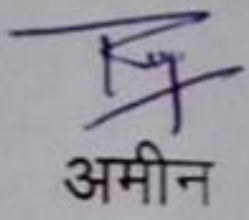 अमीन